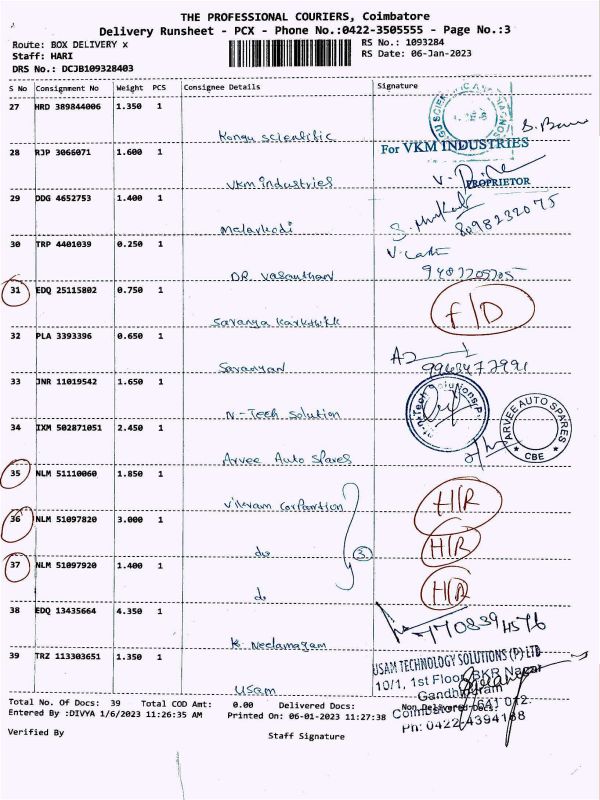 THE PROFESSIONAL COURIERS, Coimbatore
Delivery Runsheet - PCX - Phone No.:0422-3505555 - Page No.:3
Route: BOX DELIVERY x
RS No.: 1093284
Staff: HARI
RS Date: 06-Jan-2023
DRS No.: DCJB109328403
S No Consignment No Weight PCS Consignee Details Signature
27 HRD 389844006 1.350 1
Kongu Scientific
28 RJP 3066071 1.600 1
For VKM INDUSTRIES
Vkm industries
PROPRIETOR
29 DDG 4652753 1.400 1
8098232075
Malarkodi
30 TRP 4401039 0.250 1
DR. Vasanthan
31 EDQ 25115802 0.750 1
F/D
32 PLA 3393396 0.650 1
Saravanan
33 JNR 11019542 1.650 1
N-Tech Solution
34 IXM 502871051 2.450 1
ARVEE AUTO SPARES
CBE
Arvee Auto Spares
35 NLM 51110060 1.850 1
H/R
36 NLM 51097820 3.000 1
H/R
do
3
37 NLM 51097920 1.400 1
do
38 EDQ 13435664 4.350 1
39 TRZ 113303651 1.350 1
USAM TECHNOLOGY SOLUTIONS (P) LTD
10/1, 1st Floor, BKR Nagar
Gandhipuram
Usam
Coimbatore - 641 012.
Ph: 0422-4394168
Total No. Of Docs: 39 Total COD Amt: 0.00 Delivered Docs: Non Delivered Docs:
Entered By :DIVYA 1/6/2023 11:26:35 AM Printed On: 06-01-2023 11:27:38
Verified By
Staff Signature